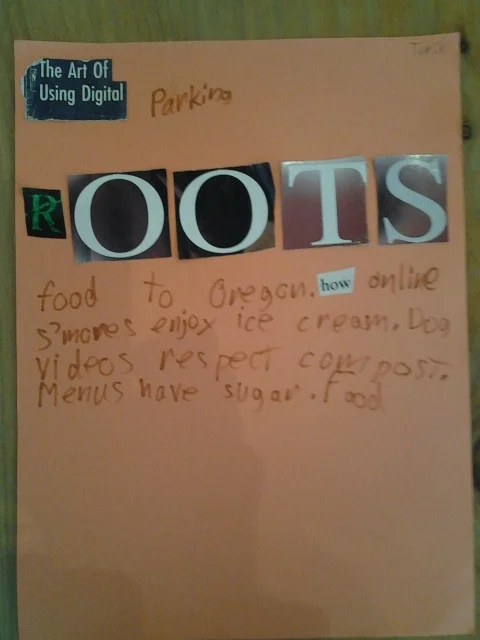 The Art Of
Using Digital
Parking
ROOTS
food to Oregon. how online
s'mores enjoy ice cream. Dog
videos respect compost.
Menus have sugar. food